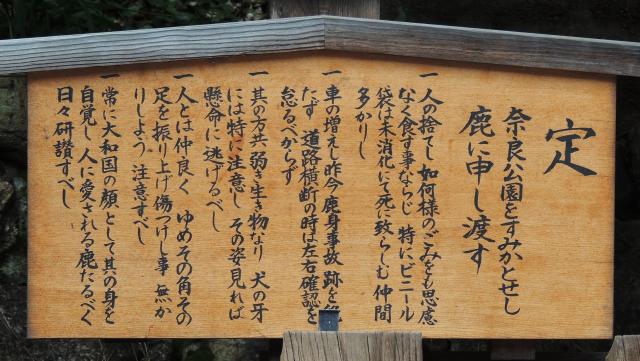 定
奈良公園をすみかとせし
鹿に申し渡す
一 人の捨てし 如何様のごみをも思慮
なく食す事ならじ 特にビニール
袋は未消化にて死に致らしむ 仲間
多かりし
一 車の増えし昨今 鹿身事故 跡を絶
たず 道路横断の時は左右確認を
怠るべからず
一 其の方共 弱き生き物なり 犬の牙
には特に注意し その姿見れば
懸命に 逃げるべし
一 人とは仲良く ゆめその角 その
足を振り上げ傷つけし事 無か
りしよう 注意すべし
一 常に大和国の顔として其の身を
自覚し 人に愛される鹿たるべく
日々研讃すべし